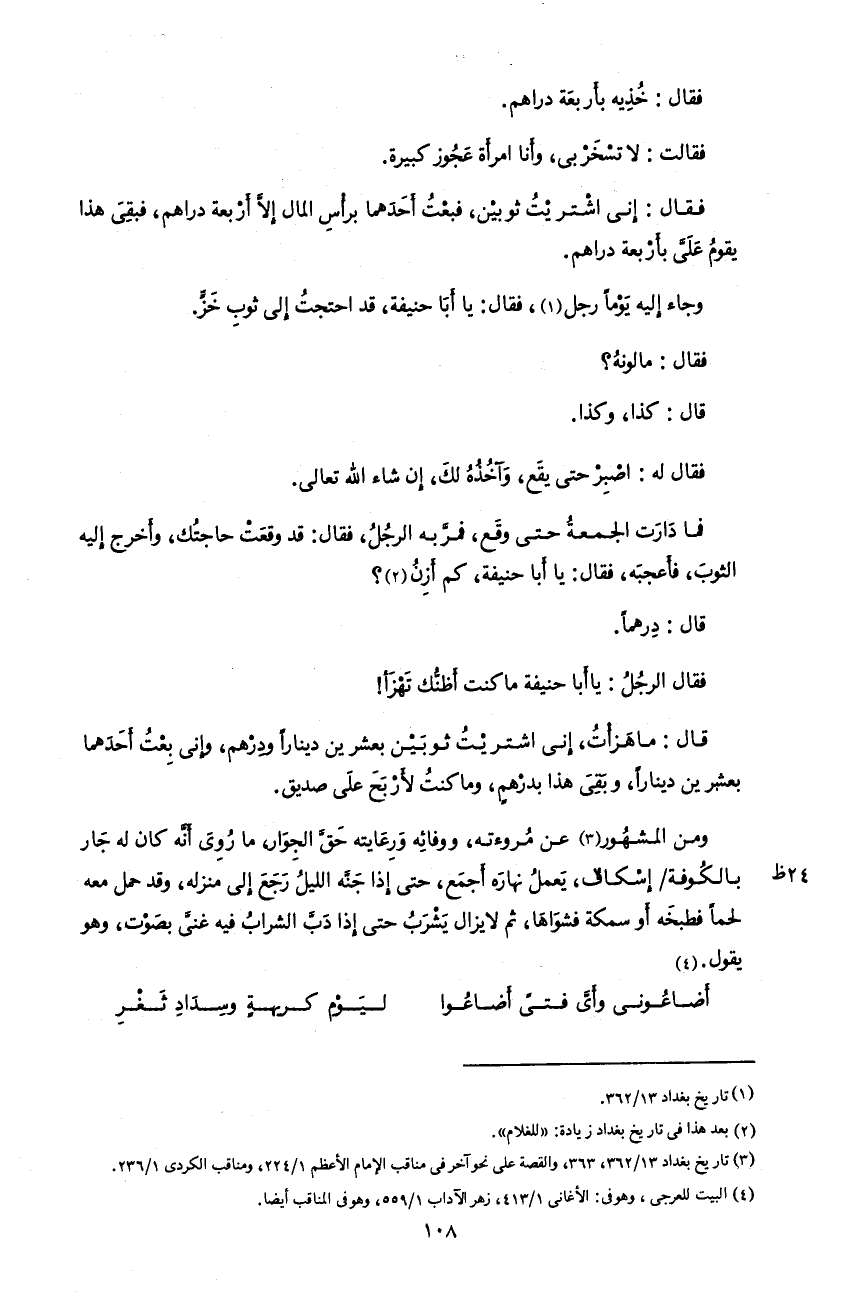 فقال : خُذِيه بأَربعَة دراهم.
فقالت : لا تسْخَرْ بى، وأَنا امرأَة عَجُوز كبيرة.
فـقـال : إنـى اشْتـر يْتُ ثو بيْن، فبعْتُ أَحَدَهما برأْسِ المال إلاَّ أرْبعة دراهم، فبقِىَ هذا
يقومُ عَلَىَّ بأَرْبعة دراهم.
وجاء إليه يَوْماً رجل(١) ، فقال: يا أَبَا حنيفة، قد احتجتُ إلى ثوبِ خَزٍّ.
فقال : مالونهُ؟
قال : كذا، وكذا.
فقال له : اصْبِرْ حتى يقَع، وَآخُذُهُ لكَ، إن شاء الله تعالى.
فـا دَارَت الجـمـعـةُ حـتـى وقَـع، فمَـرَّ بـه الرجُلُ، فقال: قد وقعَتْ حاجتُك، وأَخرج إليه
الثوبَ، فأَعجبَه، فقال: يا أبا حنيفة، كم أَزِنُ(٢)؟
قال : دِرهماً.
فقال الرجُلُ : ياأبا حنيفة ماكنت أظنُّك تَهْزَأ!
قـال : مـاهَـزأْتُ، إنـى اشـتـر يْـتُ ثـو بَـيْـن بعشر ين ديناراً ودِرْهم، وإنى بِعْتُ أحَدَهما
بعشر ين ديناراً، و بَقِىَ هذا بدرْهمٍ، وماكنتُ لأَرْبَحَ علَى صديق.
ومن المشهُور(٣) عـن مُـروءتـه، ووفائِه وَرِعَايته حَقَّ الجِوَارِ، ما رُوِىَ أنَّه كان له جَار
بـالـكُـوفـة/ إسْـكـاف، يَعملُ نهارَه أجمَع، حتى إذا جَنَّه الليلُ رَجَعَ إلى منزله، وقد حمل معه ٢٤ظ
لحماً فطبخَه أو سمكة فشوَاهَا، ثم لايزال يَشْرَبُ حتى إذا دَبَّ الشرابُ فيه غنىَّ بصَوْت، وهو
يقول.(٤)
أضـاعُـونـى وأىَّ فـتـىً أضـاعُـوا ليَـوْم كـريهـةٍ وسِـدَادِ ثَـغْـرِ
(١) تاريخ بغداد ٣٦٢/١٣.
(٢) بعد هذا فى تاريخ بغداد زيادة: «للغلام».
(٣) تاريخ بغداد ٣٦٢/١٣، ٣٦٣، والقصة على نحو آخر فى مناقب الإمام الأعظم ٢٢٤/١، ومناقب الكردى ٢٣٦/١.
(٤) البيت للعرجى ، وهوفى: الأغانى ٤١٣/١، زهر الآداب ٥٥٩/١، وهوفى المناقب أيضا.
١٠٨